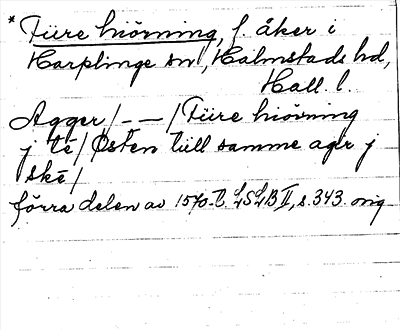 * Fiire hiörning, f. åker i
Harplinge sn, Halmstads hd,
Hall. l.
Agger/ - — / Fiire hiörning
j tē/ Østen till samme ager j
skē/
förra delen av 1570-t. LSLB II, s. 343. orig